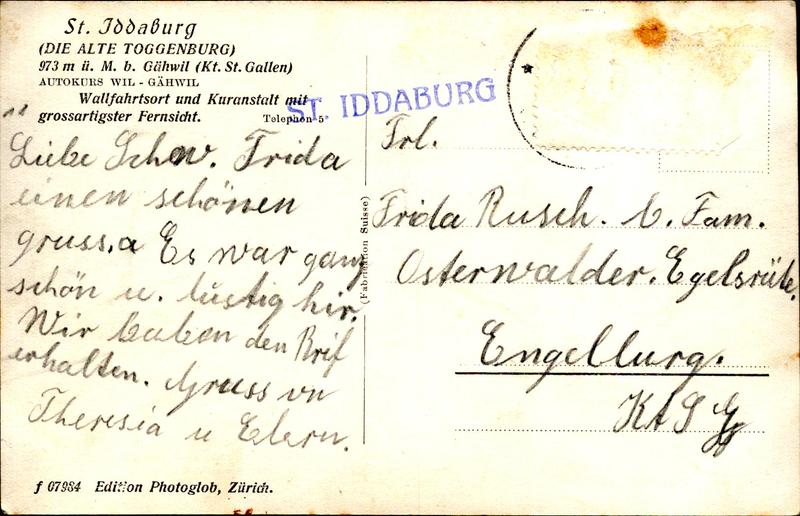 St. Iddaburg
(DIE ALTE TOGGENBURG)
973 m ü. M. b. Gähwil (Kt. St. Gallen)
AUTOKURS WIL - GÄHWIL
Wallfahrtsort und Kuranstalt mit
grossartigster Fernsicht. Telephon 5
ST. IDDABURG
Liebe Schw. Frida
einen schönen
gruss.a Es war ganz
schön u. lustig hir.
Wir haben den Brif
erhalten. Gruss vn
Theresia u Elern.
(Fabrication Suisse)
Frl.
Frida Rusch. b. Fam.
Osterwalder. Egelsrüte.
Engelburg.
Kt S G
f 07984 Edition Photoglob, Zürich.